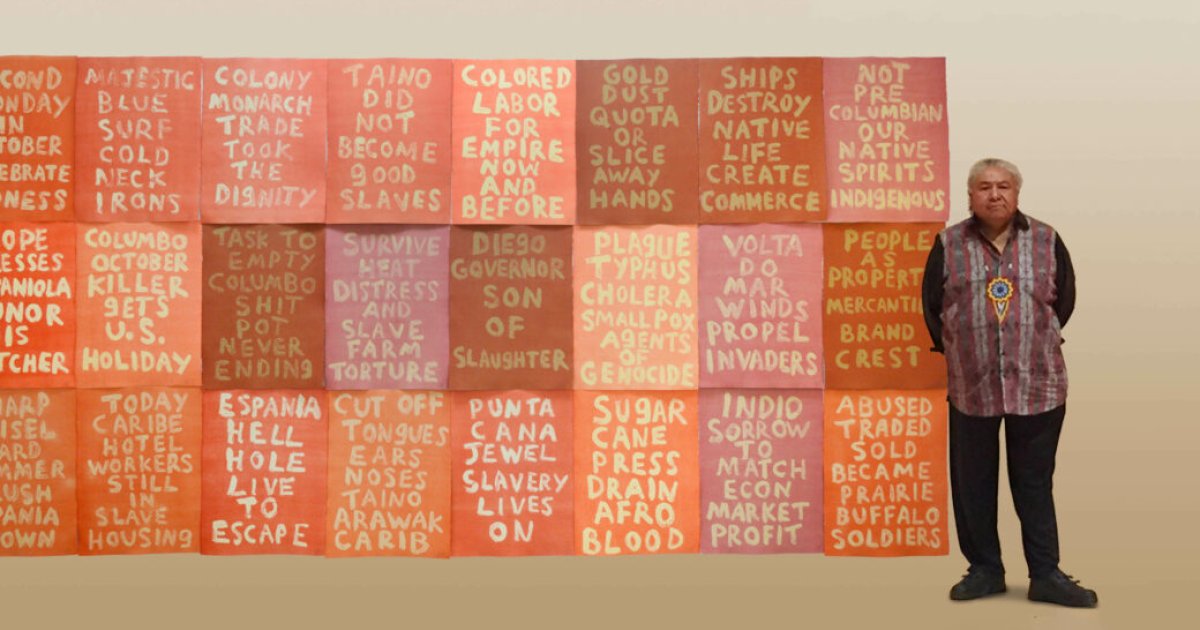 COND
ONDAY
IN
TOBER
EBRATE
NESS
MAJESTIC
BLUE
SURF
COLD
NECK
IRONS
COLONY
MONARCH
TRADE
TOOK
THE
DIGNITY
TAINO
DID
NOT
BECOME
GOOD
SLAVES
COLORED
LABOR
FOR
EMPIRE
NOW
AND
BEFORE
GOLD
DUST
QUOTA
OR
SLICE
AWAY
HANDS
SHIPS
DESTROY
NATIVE
LIFE
CREATE
COMMERCE
NOT
PRE
COLUMBIAN
OUR
NATIVE
SPIRITS
INDIGENOUS
OPE
ESSES
PANIOLA
NOR
IS
TCHER
COLUMBO
OCTOBER
KILLER
GETS
U.S.
HOLIDAY
TASK TO
EMPTY
COLUMBO
SHIT
POT
NEVER
ENDING
SURVIVE
HEAT
DISTRESS
AND
SLAVE
FARM
TORTURE
DIEGO
GOVERNOR
SON
OF
SLAUGHTER
PLAGUE
TYPHUS
CHOLERA
SMALL POX
AGENTS
OF
GENOCIDE
VOLTA
DO
MAR
WINDS
PROPEL
INVADERS
PEOPLE
AS
PROPERT
MERCANTI
BRAND
CREST
HARP
ISEL
ARD
MMER
USH
PANIA
OWN
TODAY
CARIBE
HOTEL
WORKERS
STILL
IN
SLAVE
HOUSING
ESPANIA
HELL
HOLE
LIVE
TO
ESCAPE
CUT OFF
TONGUES
EARS
NOSES
TAINO
ARAWAK
CARIB
PUNTA
CANA
JEWEL
SLAVERY
LIVES
ON
SUGAR
CANE
PRESS
DRAIN
AFRO
BLOOD
INDIO
SORROW
TO
MATCH
ECON
MARKET
PROFIT
ABUSED
TRADED
SOLD
BECAME
PRAIRIE
BUFFALO
SOLDIERS